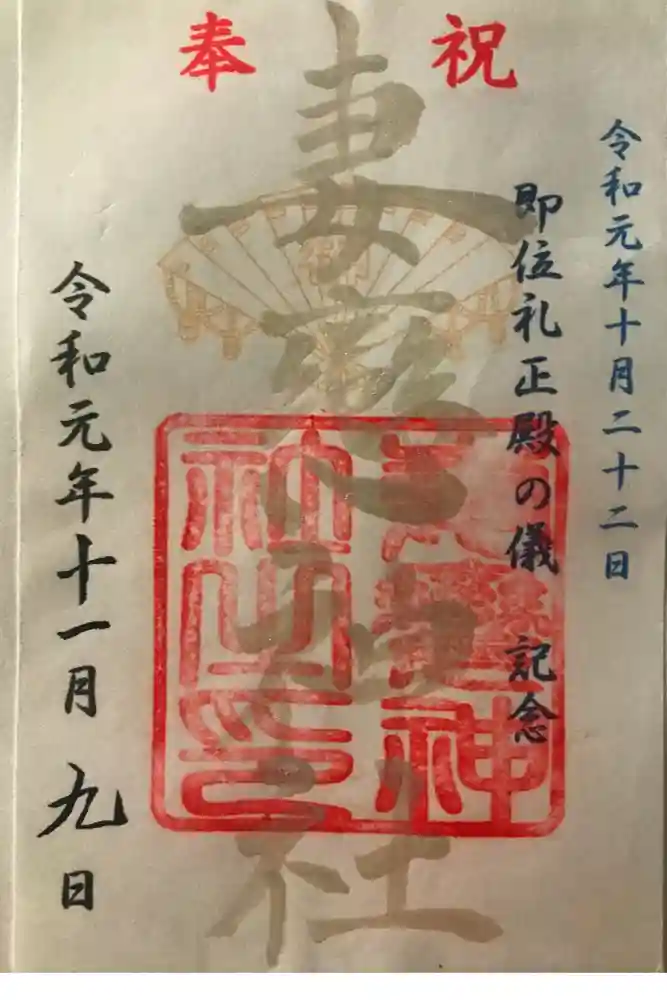 奉祝
令和元年十月二十二日
即位礼正殿の儀 記念
妻恋神社
令和元年十一月九日